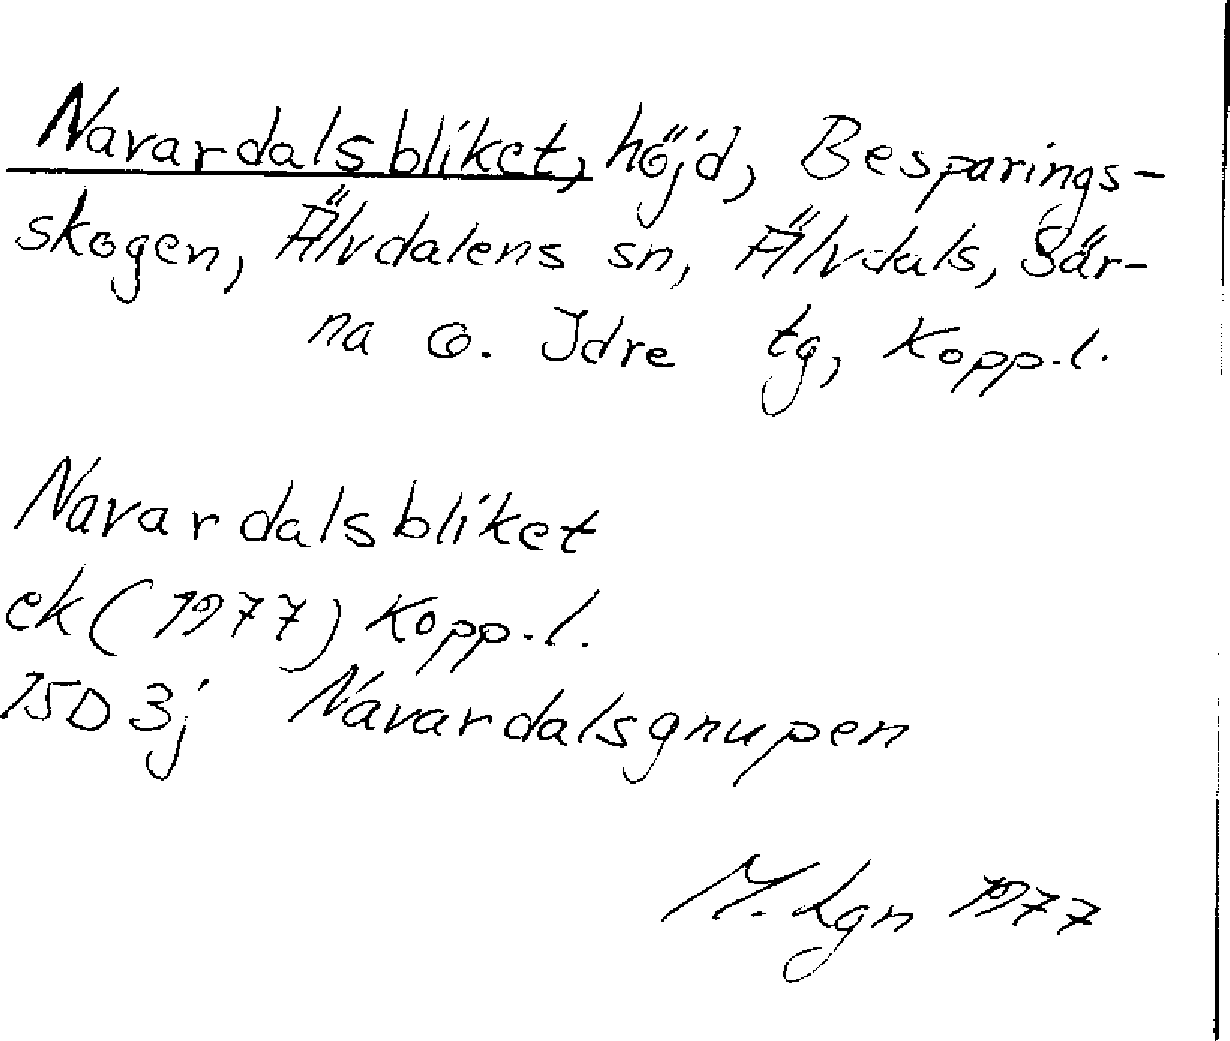 Navardalsbliket, höjd, Besparings-
skogen, Älvdalens sn, Älvdals, Sär-
na o. Idre tg, Kopp.l.
Navardalsbliket
ek (1977) Kopp.l.
15D 3j Navardalsgnupen
M. Lgn 1977